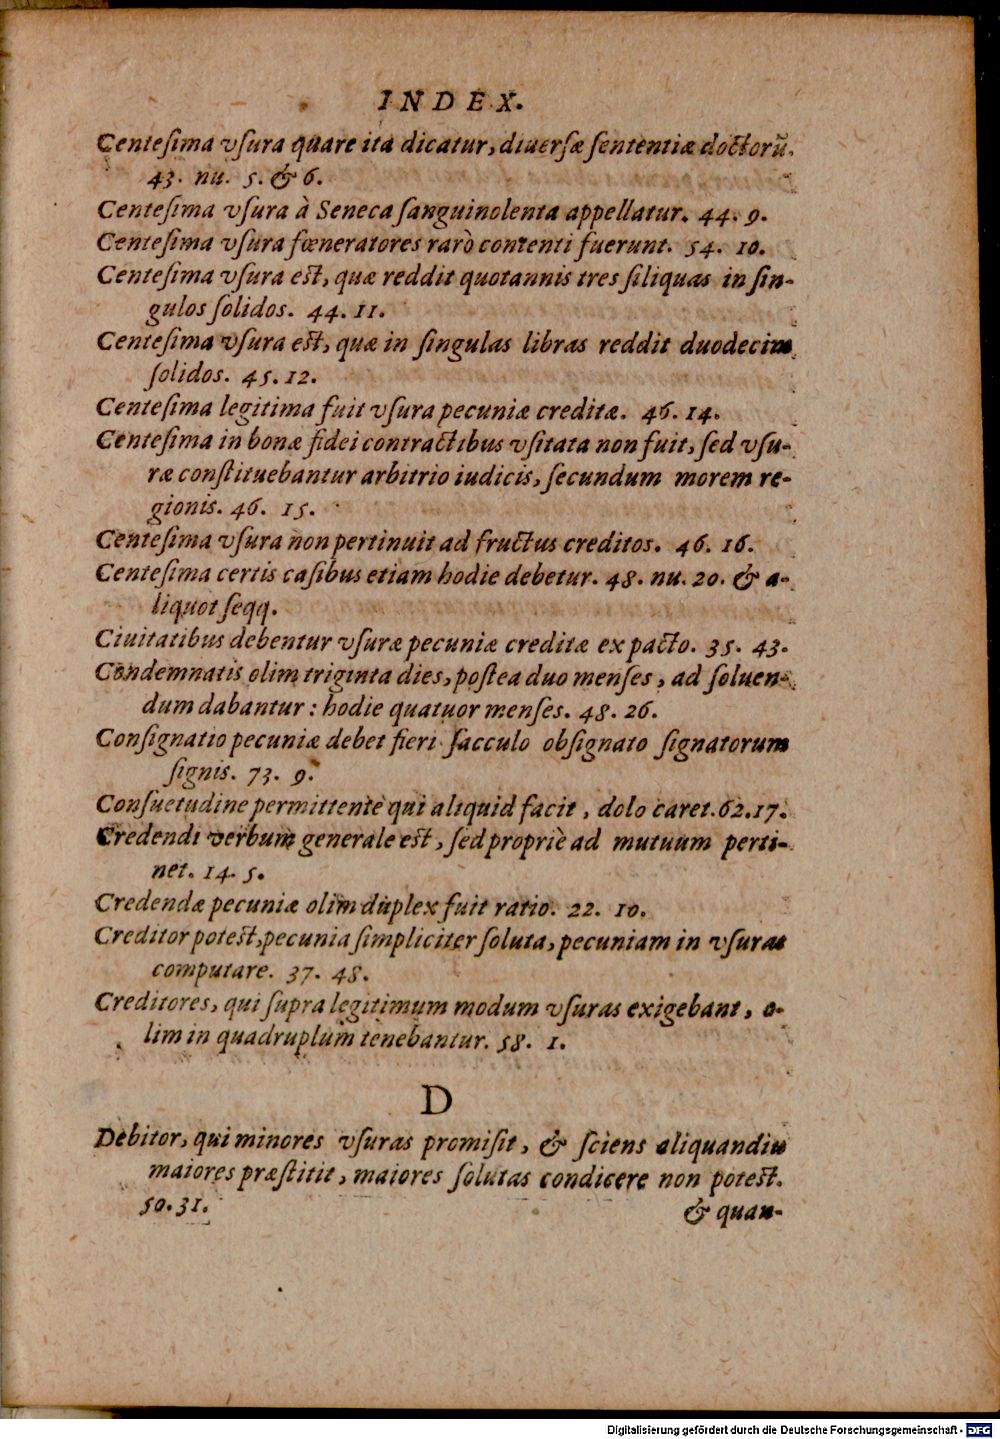 INDEX.
Centeſima vſura quare ita dicatur, diuerſæ ſententiæ doctorũ.
43. nu. 5. & 6.
Centeſima vſura à Seneca ſanguinolenta appellatur. 44. 9.
Centeſima vſura fœneratores rarò contenti fuerunt. 54. 10.
Centeſima vſura eſt, quæ reddit quotannis tres ſiliquas in ſin-
gulos ſolidos. 44. 11.
Centeſima vſura eſt, quæ in ſingulas libras reddit duodecim
ſolidos. 45. 12.
Centeſima legitima fuit vſura pecuniæ creditæ. 46. 14.
Centeſima in bonæ fidei contractibus vſitata non fuit, ſed vſu-
ræ conſtituebantur arbitrio iudicis, ſecundum morem re-
gionis. 46. 15.
Centeſima vſura non pertinuit ad fructus creditos. 46. 16.
Centeſima certis caſibus etiam hodie debetur. 48. nu. 20. & a-
liquot ſeqq.
Ciuitatibus debentur vſuræ pecuniæ creditæ ex pacto. 35. 43.
Condemnatis olim triginta dies, poſtea duo menſes, ad ſoluen-
dum dabantur: hodie quatuor menſes. 48. 26.
Conſignatio pecuniæ debet fieri ſacculo obſignato ſignatorum
ſignis. 73. 9.
Conſuetudine permittente qui aliquid facit, dolo caret. 62. 17.
Credendi verbum generale eſt, ſed propriè ad mutuum perti-
net. 14. 5.
Credendæ pecuniæ olim duplex fuit ratio. 22. 10.
Creditor poteſt, pecunia ſimpliciter ſoluta, pecuniam in vſuras
computare. 37. 48.
Creditores, qui ſupra legitimum modum vſuras exigebant, o-
lim in quadruplum tenebantur. 58. 1.
D
Debitor, qui minores vſuras promiſit, & ſciens aliquandiu
maiores præſtitit, maiores ſolutas condicere non poteſt.
50. 31.
& quan-
Digitalisierung gefördert durch die Deutsche Forschungsgemeinschaft - DFG